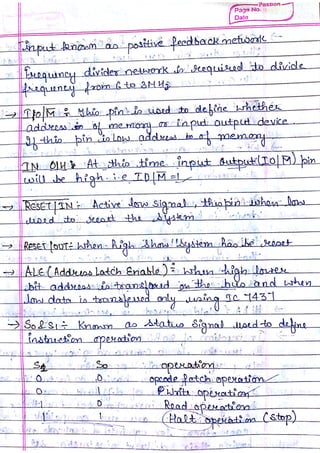 Page No.
Date
Input known as positive feedback network
Frequency divider network is required to divide
frequency from 6 to 3MHz
→ IO/M : This pin is used to define whether
address is of memory or input output device.
If this pin is low address is of memory
IN 01H : At this time input output (IO/M) pin
will be high i.e IO/M = 1
→ RESET IN : Active low signal, this pin when low
used to reset the system
→ RESET OUT : When high show system has be reset
→ ALE (Address Latch Enable) : When high lower
bit address is transferred on the bus and when
low data is transferred only using IC 7437
→ S0 & S1 : Known as status signal used to define
instruction operation
S1 S0 operation
0 0 opcode fetch operation
0 1 Write operation
1 0 Read operation
1 1 (Halt operation (stop)